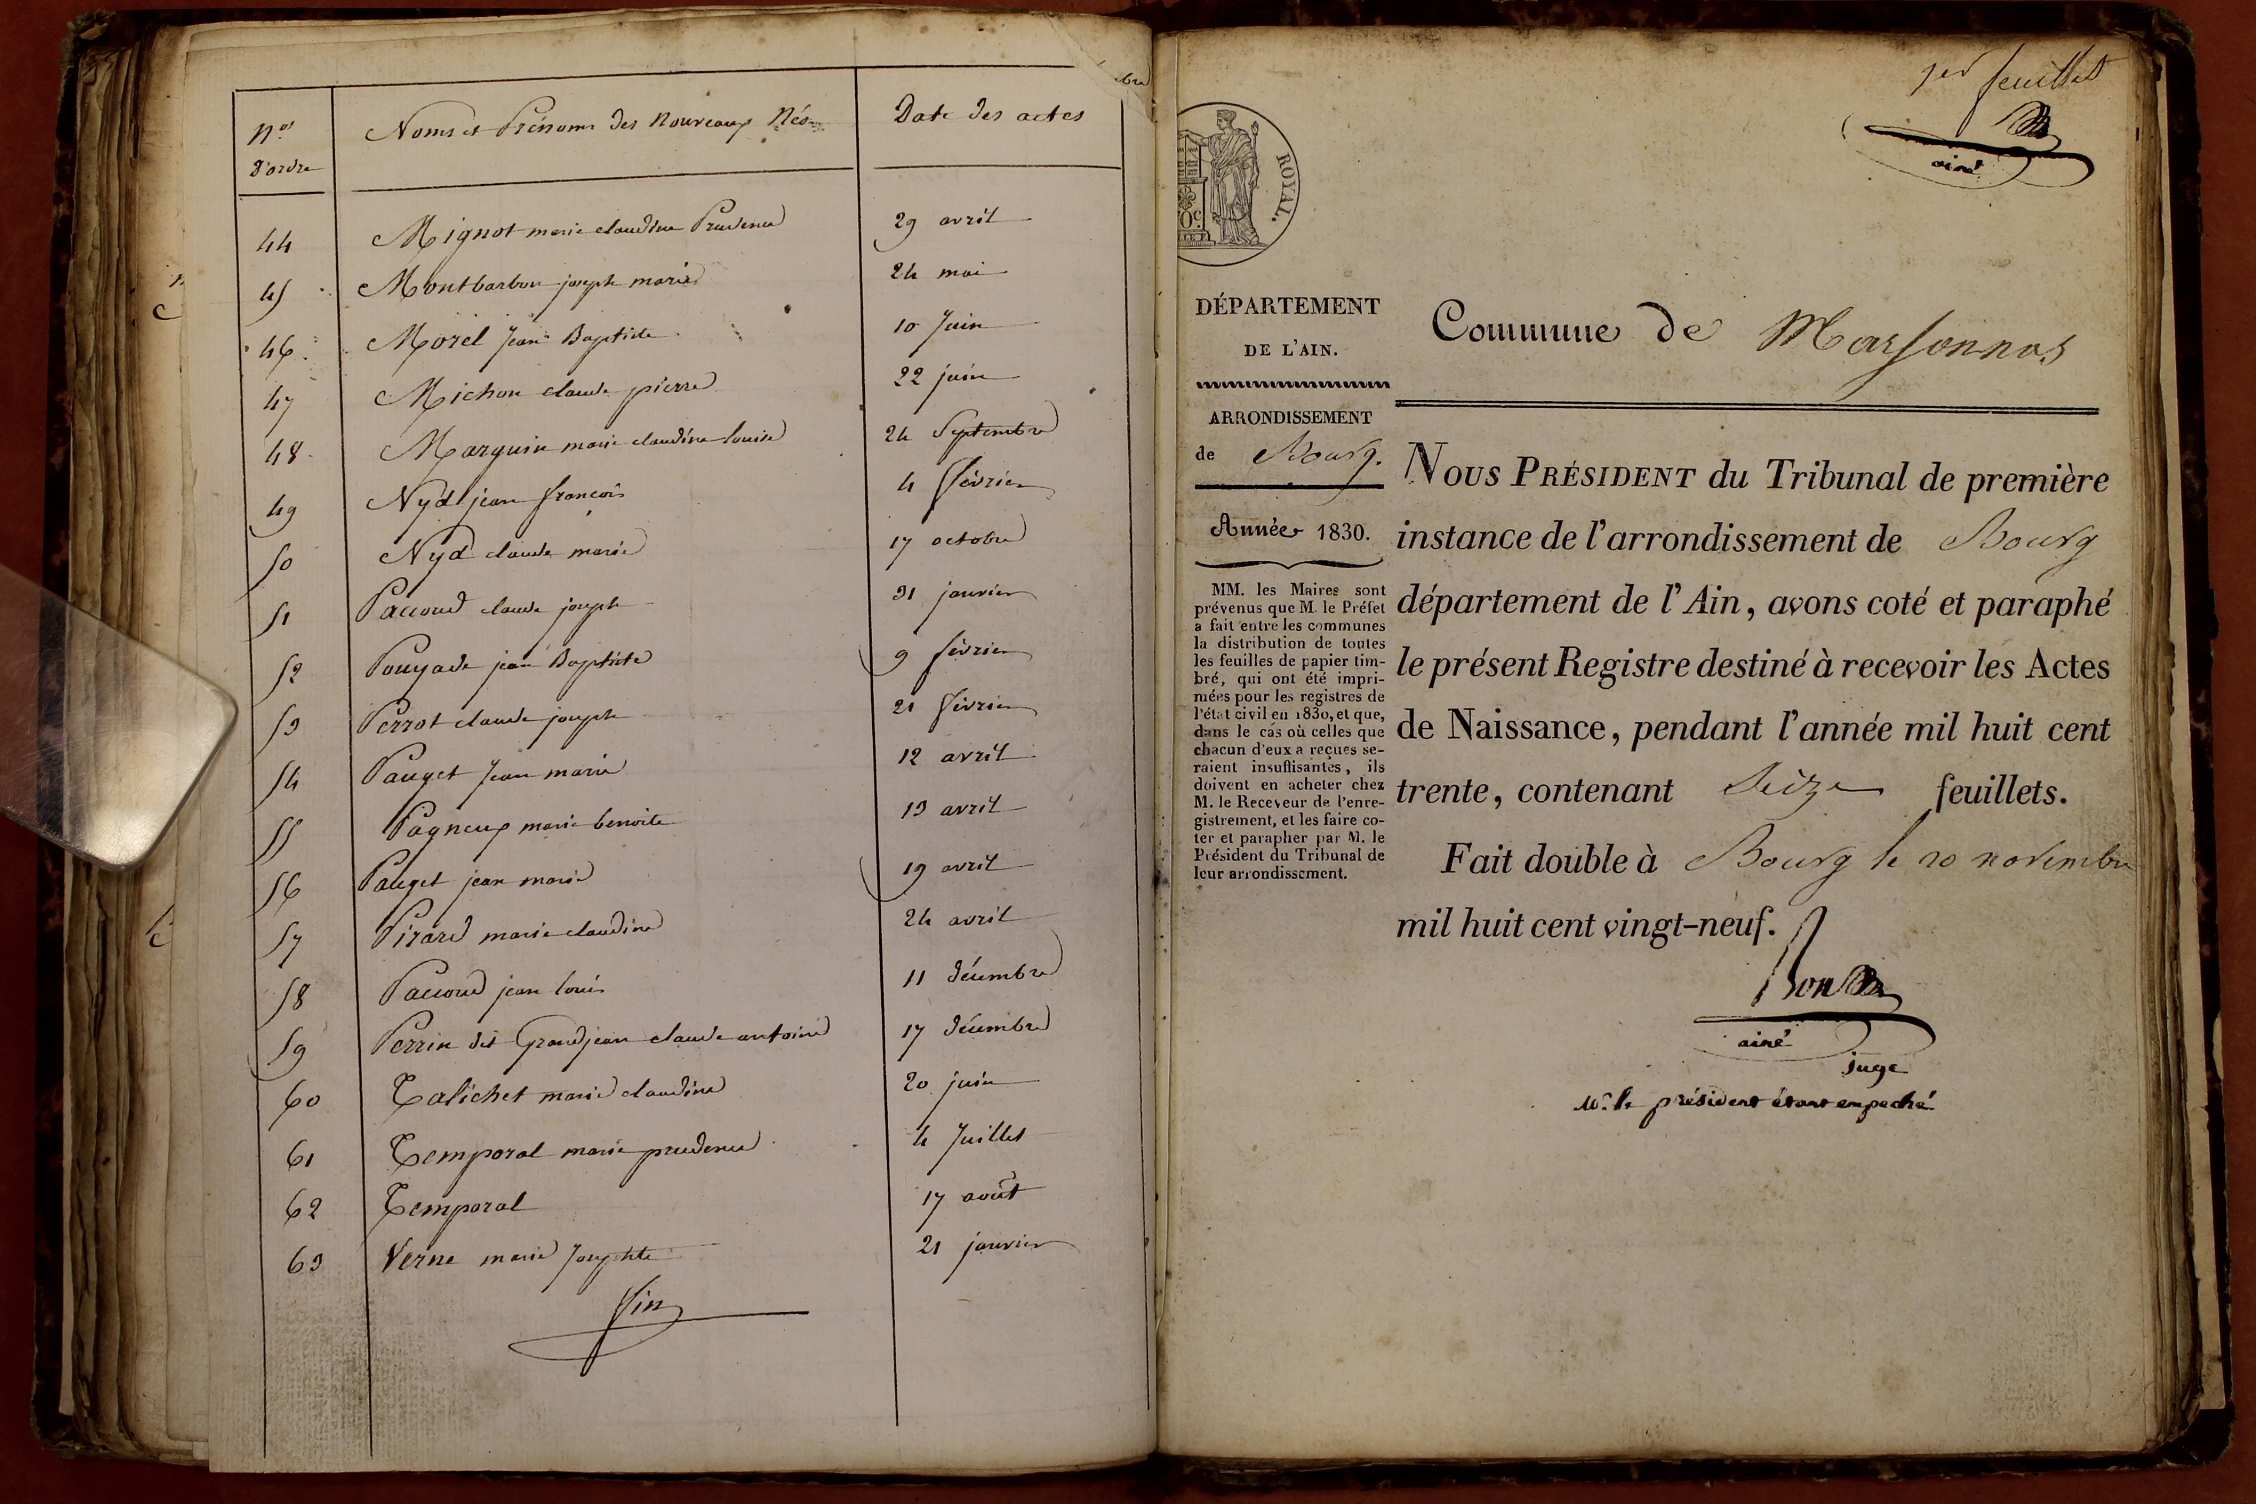 Nos d'ordre Noms et Prénoms des Nouveaux Nés Date des actes
44 Mignot marie claudine Prudence 29 avril
45 Montbarbon joseph marie 24 mai
46 Morel Jean Baptiste 10 Juin
47 Michon claude pierre 22 juin
48 Marguin marie claudine louise 24 Septembre
49 Nyd jean françois 4 février
50 Nyd claude marie 17 octobre
51 Paccoud claude joseph 31 janvier
52 Pouyade jean Baptiste 9 février
53 Perrot claude joseph 21 février
54 Pauget Jean marie 12 avril
55 Pagneux marie benoite 13 avril
56 Pauget jean marie 19 avril
57 Pirard marie claudine 24 avril
58 Paccoud jean louis 11 décembre
59 Perrin dit Grandjean claude antoine 17 décembre
60 Talichet marie claudine 20 juin
61 Temporal marie prudence 4 Juillet
62 Temporal 17 août
63 Verne marie Josephte 21 janvier
fin
bre
1er feuillet
ainé
ROYAL.
DÉPARTEMENT
DE L'AIN.
ARRONDISSEMENT
de Bourg.
Année 1830.
MM. les Maires sont
prévenus que M. le Préfet
a fait entre les communes
la distribution de toutes
les feuilles de papier tim-
bré, qui ont été impri-
mées pour les registres de
l'état civil en 1830, et que,
dans le cas où celles que
chacun d'eux a reçues se-
raient insuffisantes, ils
doivent en acheter chez
M. le Receveur de l'enre-
gistrement, et les faire co-
ter et parapher par M. le
Président du Tribunal de
leur arrondissement.
Commune de Marsonnas
NOUS PRÉSIDENT du Tribunal de première
instance de l'arrondissement de Bourg
département de l'Ain, avons coté et paraphé
le présent Registre destiné à recevoir les Actes
de Naissance, pendant l'année mil huit cent
trente, contenant Seize feuillets.
Fait double à Bourg le 20 novembre
mil huit cent vingt-neuf.
ainé
juge
Mr. le président étant empeché